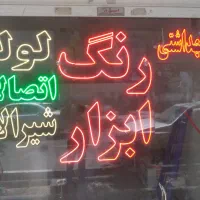 بهداشتی
رنگ
ابزار
لوله
اتصالا
شیرالا